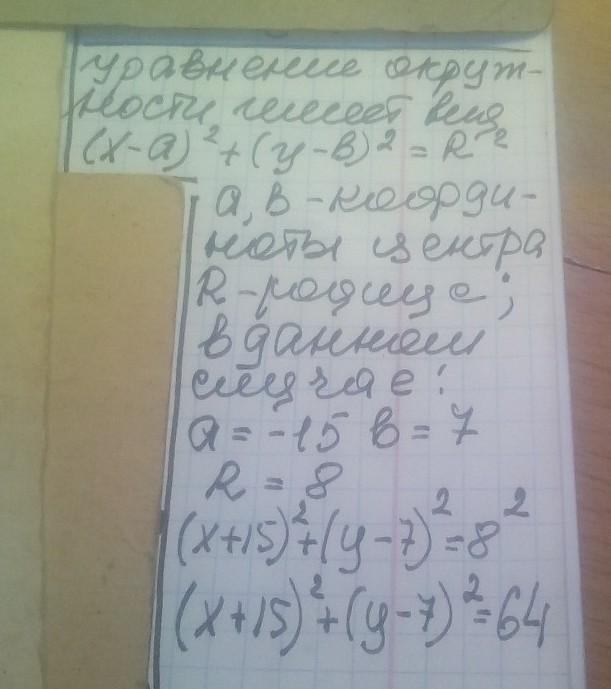 уравнение окруж-
ности имеет вид
(x-a)² + (y-в)² = R²
a, в - коорди-
наты центра
R - радиус;
в данном
случае:
a = -15 в = 7
R = 8
(x+15)² + (y-7)² = 8²
(x+15)² + (y-7)² = 64